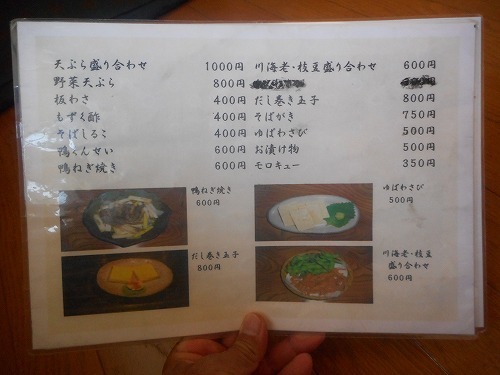 天ぷら盛り合わせ 1000円
野菜天ぷら 800円
板わさ 400円
もずく酢 400円
そばしるこ 400円
鴨くんせい 600円
鴨ねぎ焼き 600円
川海老・枝豆盛り合わせ 600円
だし巻き玉子 800円
そばがき 750円
ゆばわさび 500円
お漬け物 500円
モロキュー 350円
鴨ねぎ焼き
600円
ゆばわさび
500円
だし巻き玉子
800円
川海老・枝豆
盛り合わせ
600円